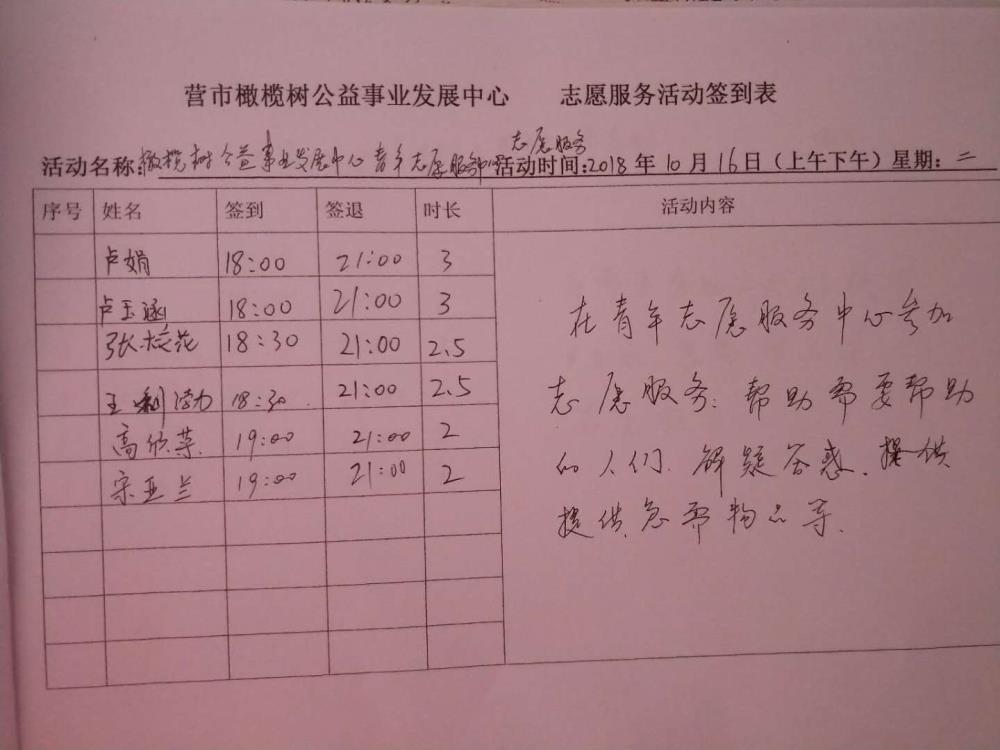 营市橄榄树公益事业发展中心 志愿服务活动签到表
志愿服务
活动名称:橄榄树公益事业发展中心青年志愿服务中心 活动时间:2018年10月16日(上午下午)星期:二
序号 姓名 签到 签退 时长 活动内容
卢娟 18:00 21:00 3
卢玉涵 18:00 21:00 3
张桂花 18:30 21:00 2.5
王利 18:30 21:00 2.5
高欣 19:00 21:00 2
宋亚兰 19:00 21:00 2
在青年志愿服务中心参加
志愿服务:帮助需要帮助
的人们.解疑答惑.提供
提供急需物品等.